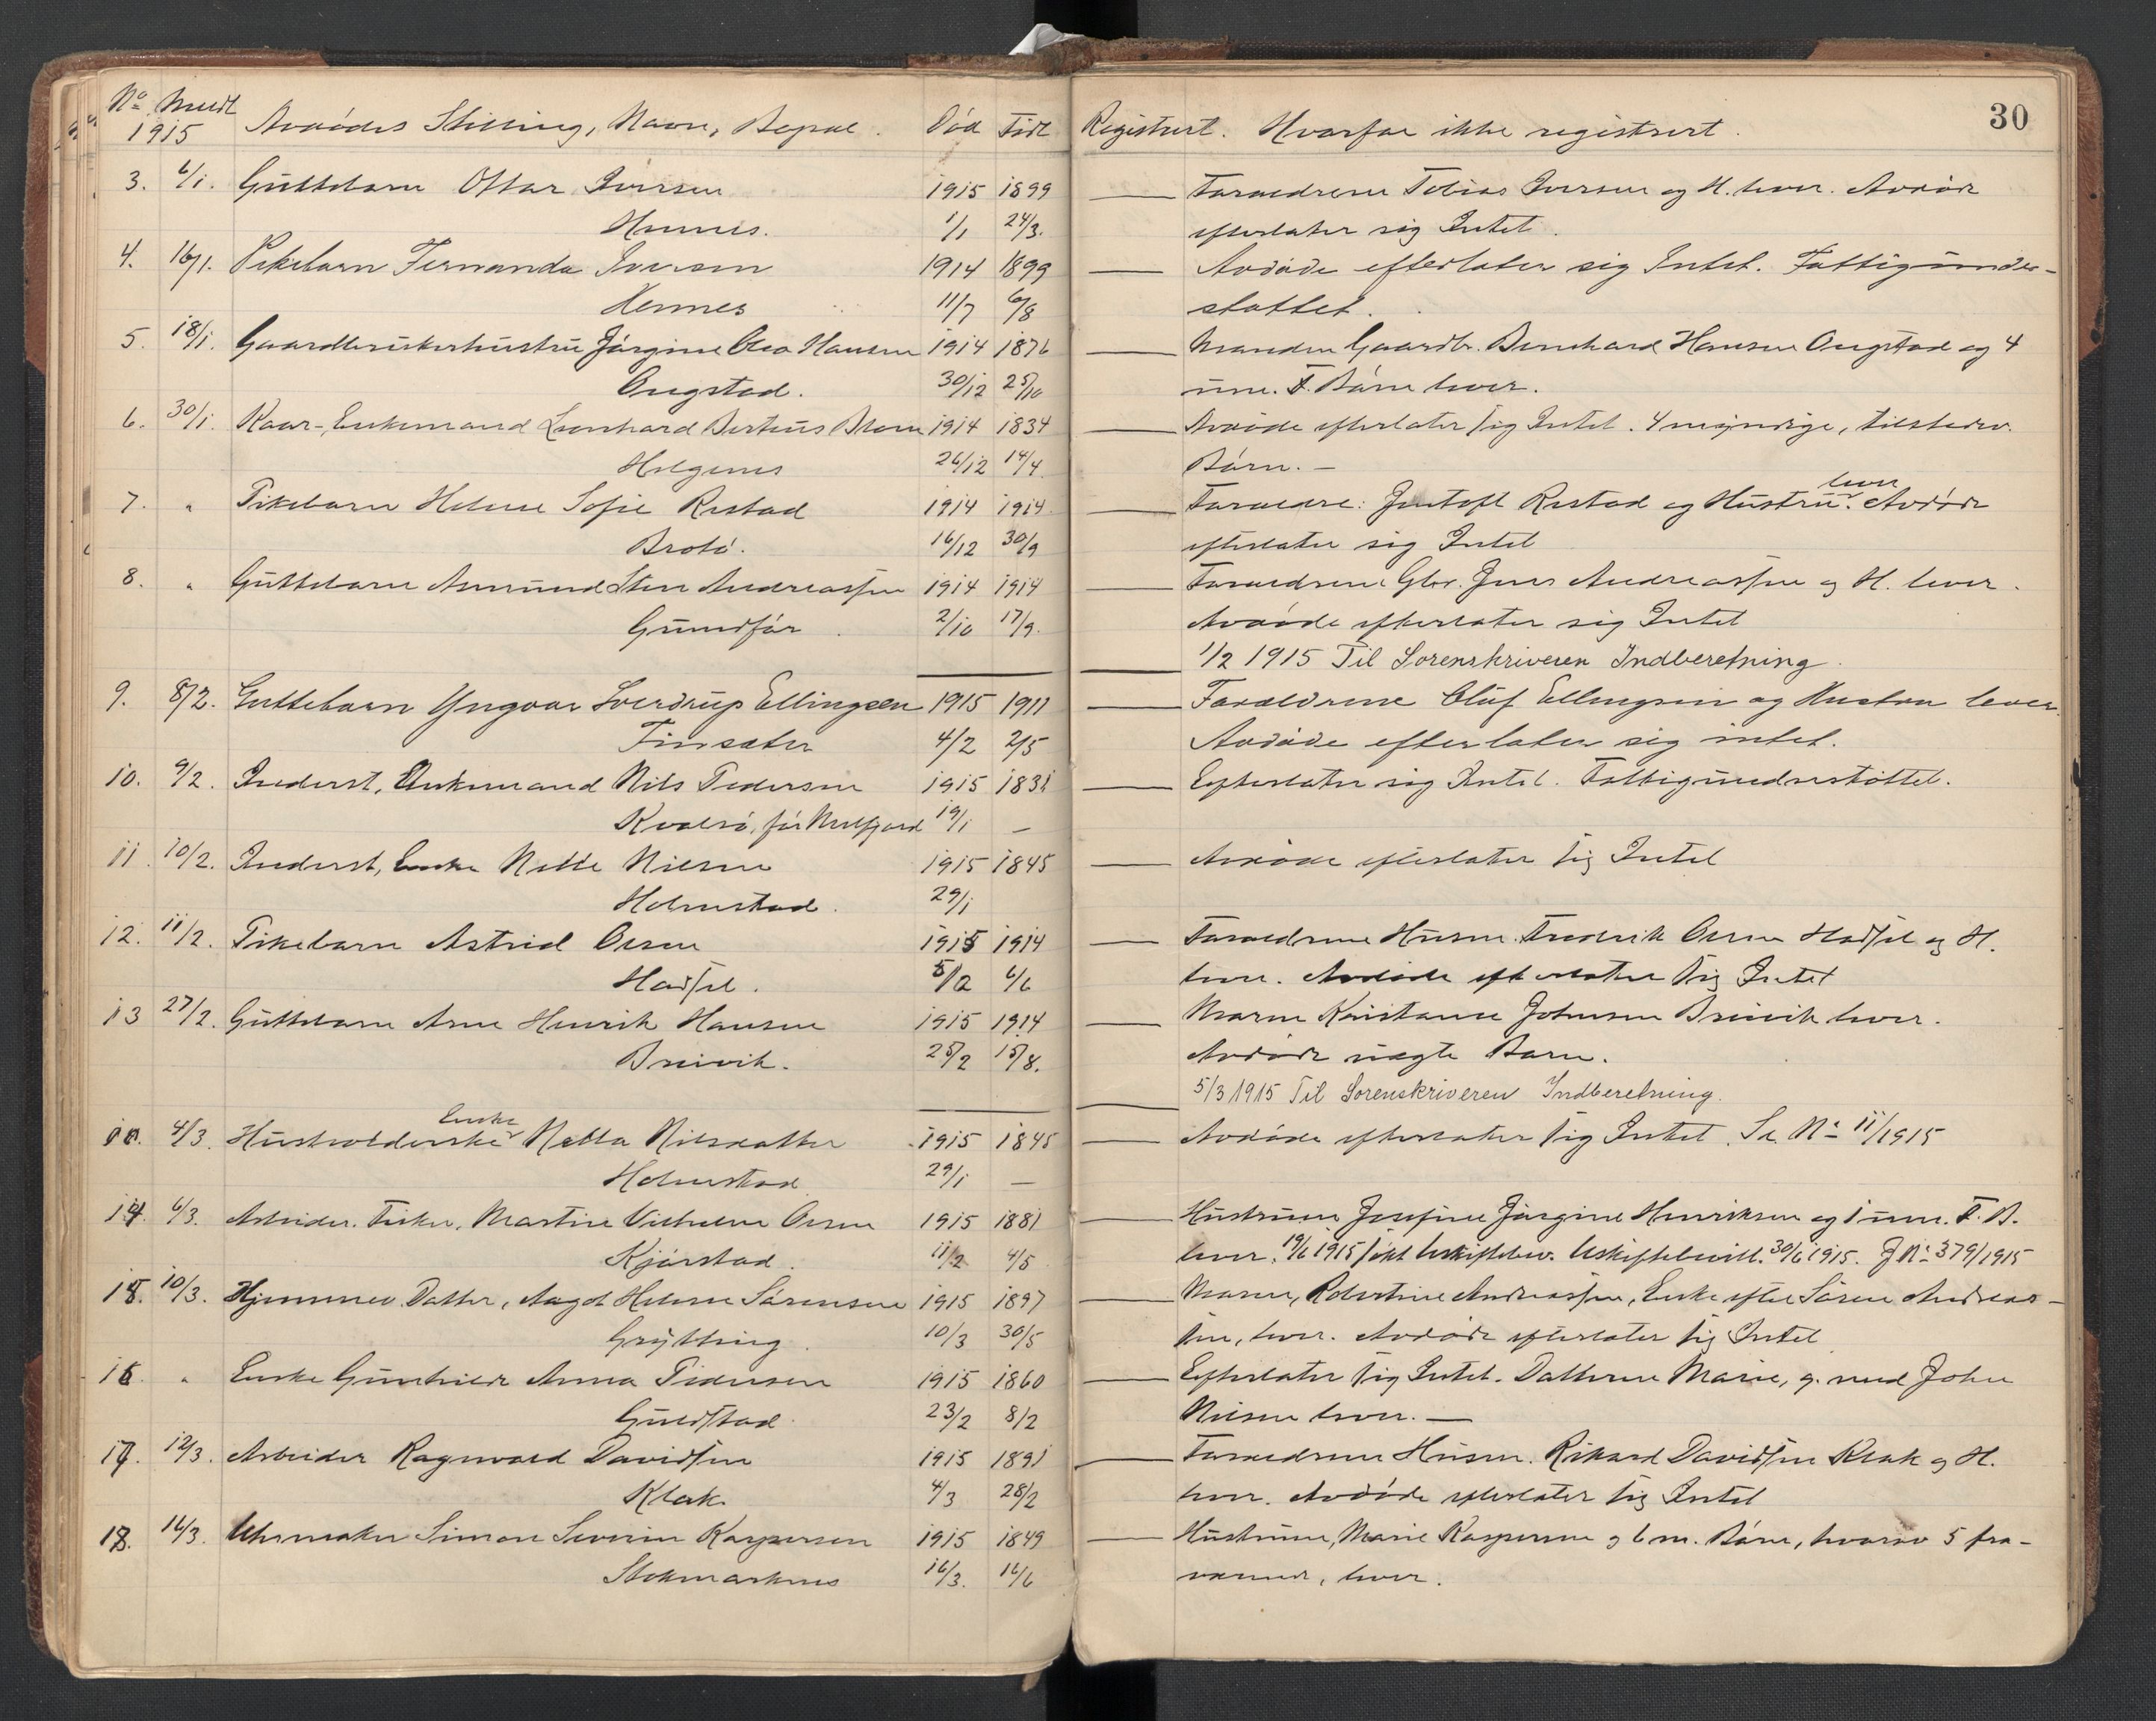 No Meldt Avdödes Stilling, Navn, Bopæl. Död Född Registrert. Hvorfor ikke registrert. 30
1915
3. 6/1. Guttebarn Ottar Iversen 1915 1899 — Forældrene Tobias Iversen og H. lever. Avdöde
Hennes. 1/1 24/3. efterlater sig Intet.
4. 16/1. Pikebarn Fernanda Iversen 1914 1899 — Avdöde efterlater sig Intet. Fattigunder-
Hennes 11/7 6/8 støttet.
5. 18/1. Gaardbrukerhustru Jørgine Olea Hansen 1914 1876 — Manden Gaardbr. Bernhard Hansen Ongstad og 4
Ongstad. 30/12 25/10 um. F. Børn lever.
6. 30/1. Kaar-Enkemand Leonhard Berteus Blom 1914 1834 — Avdöde efterlater sig Intet. 4 myndige, tilstedev.
Melgenes 26/12 14/4. Börn. —
7. " Pikebarn Helene Sofie Restad 1914 1914. — Forældre: Jentoft Restad og Hustru lever. Avdöde
Brotö. 16/12 30/9 efterlater sig Intet
8. " Guttebarn Asmund Sten Andreassen 1914 1914 — Forældrene Gbr. Jens Andreassen og H. lever.
Grundfør. 2/10 17/9. Avdöde efterlater sig Intet
1/2 1915 Til Sorenskriveren Indberetning.
9. 8/2. Guttebarn Yngvar Sverdrup Ellingsen 1915 1911 — Forældrene Oluf Ellingsen og Hustru lever.
Finsæter 4/2 2/5 Avdöde efterlater sig intet.
10. 9/2. Inderst, Enkemand Nils Pedersen 1915 1831 — Efterlater sig Intet. Fattigunderstöttet.
Kvalsö, för Melfjord 19/1 —
11. 10/2. Inderst, Enke Nette Nilsen 1915 1845 — Avdöde efterlater sig Intet
Holmstad. 29/1
12. 11/2. Pikebarn Astrid Olsen 1915 1914 — Forældrene Husm. Fredrik Olsen Hadsel og H.
Hadsel. 5/2 6/6 lever. Avdöde efterlater sig Intet
13 27/2. Guttebarn Arne Henrik Hansen 1915 1914 — Moren Konstanse Johnsen Breivik lever.
Breivik. 25/2 15/8. Avdöde uegte Barn.
5/3 1915 Til Sorenskriveren Indberetning.
11. 4/3. Husholderske Enke Netta Nilsdatter 1915 1845 — Avdöde efterlater sig Intet. Se No 11/1915
Holmstad 29/1 —
14. 6/3. Arbeider. Fisker, Martin Vilhelm Olsen 1915 1881 — Hustruen Josefine Jørgine Henriksen og 1 um. F. B.
Kjørstad. 11/2 4/5 lever. 19/6 1915 søkt Uskiftebev. Uskiftebevill. 30/6 1915. J No 379/1915
15. 10/3. Hjemmev. Datter, Aagot Helene Sørensen 1915 1897 — Moren, Robertine Andreassen, Enke efter Sören Andreas-
Grytting. 10/3 30/5 sen, lever. Avdöde efterlater sig Intet
16. " Enke Gunhilde Anna Pedersen 1915 1860 — Efterlater sig Intet. Datteren Marie, g. med John
Guldstad. 23/2 8/2 Nilsen lever. —
17. 12/3. Arbeider Ragnvald Davidsen 1915 1891 — Forældrene Husm. Rikard Davidsen Klak og H.
Klak. 4/3 28/2 lever. Avdöde efterlater sig Intet
18. 16/3. Uhrmaker Simon Severin Kaspersen 1915 1849 — Hustruen, Marie Kaspersen og 6 m. Börn, hvorav 5 fra-
Stokmarknes 16/3. 16/6 værende, lever.